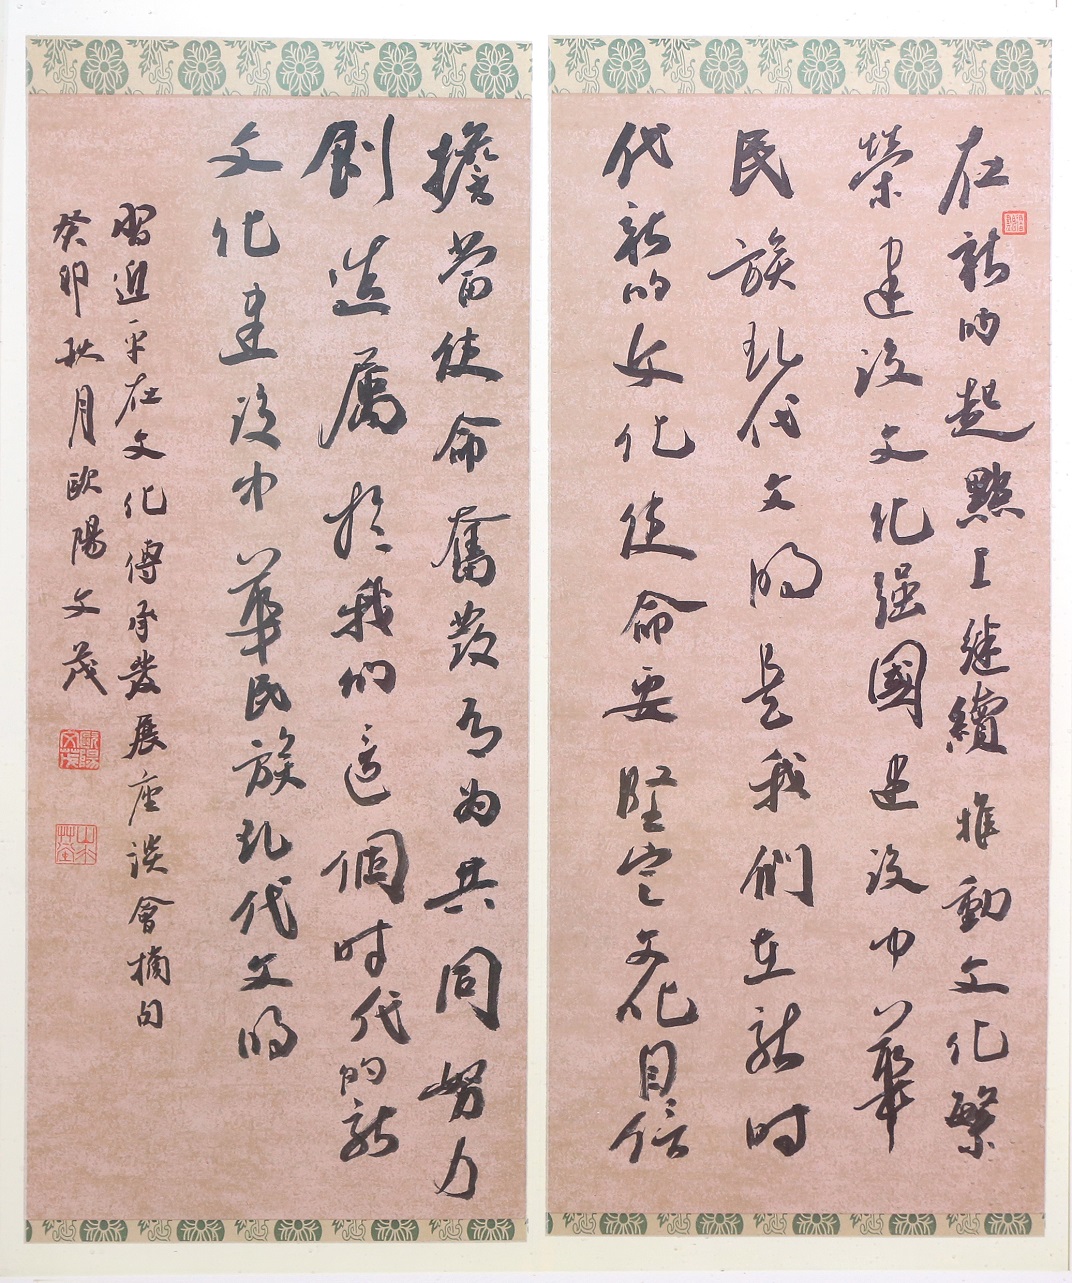 在新的起點上繼續推動文化繁
榮建設文化强國建設中華
民族現代文明是我們在新時
代新的文化使命要堅定文化自信
擔當使命奮發有為共同努力
創造屬於我們這個時代的新
文化建設中華民族現代文明
習近平在文化傳承發展座談會摘句
癸卯秋月歐陽文茂
歐陽文茂
山木艸堂